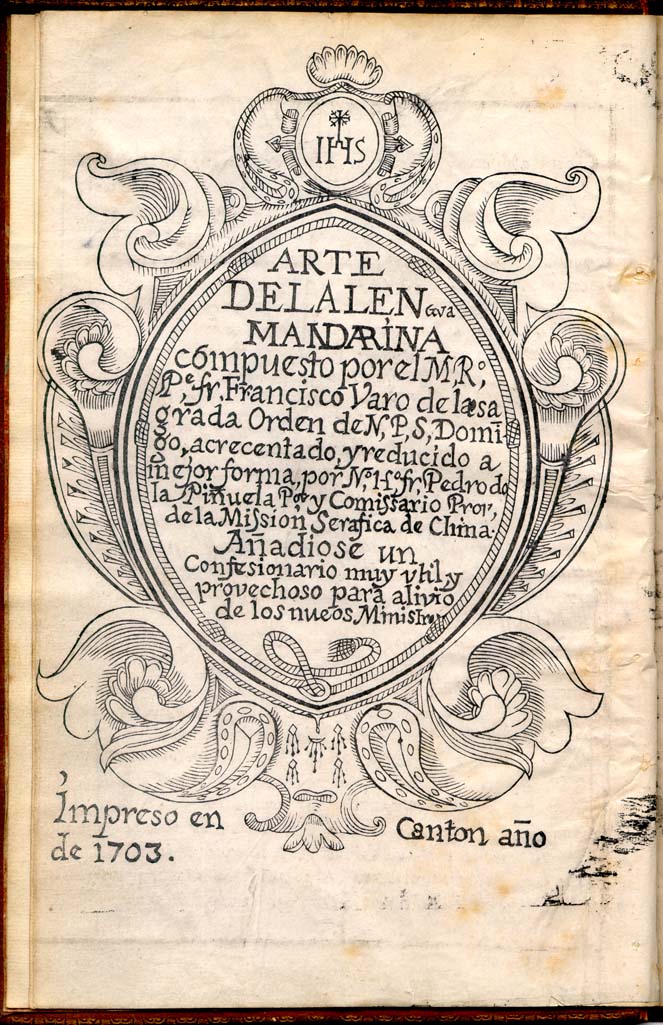 IHS
ARTE
DE LA LENGua
MANDARINA
compuesto por el M, Rº,
Pe, fr, Francisco Varo de la sa
grada Orden de N, P, S, Domĩ
go, acrecentado, y reducido a
mejor forma, por Nº H.º fr, Pedro de
la Piñuela Por y Comissario Prov,
de la Mission Serafica de China.
Añadiose un
Confesionario muy vtil, y
provechoso para alivio
de los nueos Ministros
Impreso en Canton año
de 1703.